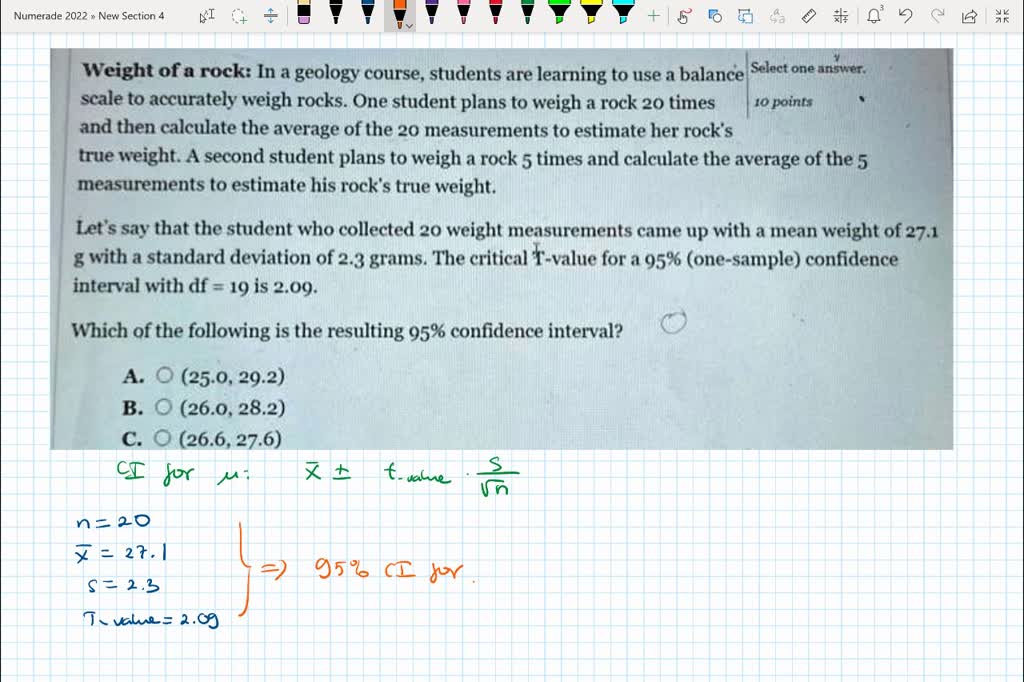 Numerade 2022 » New Section 4
3
Weight of a rock: In a geology course, students are learning to use a balance
scale to accurately weigh rocks. One student plans to weigh a rock 20 times
and then calculate the average of the 20 measurements to estimate her rock's
true weight. A second student plans to weigh a rock 5 times and calculate the average of the 5
measurements to estimate his rock's true weight.
Select one answer.
10 points
Let's say that the student who collected 20 weight measurements came up with a mean weight of 27.1
g with a standard deviation of 2.3 grams. The critical T-value for a 95% (one-sample) confidence
interval with df = 19 is 2.09.
Which of the following is the resulting 95% confidence interval?
A. (25.0, 29.2)
B. (26.0, 28.2)
C. (26.6, 27.6)
CI for μ: x̄ ± t-value · s/√n
n = 20
x̄ = 27.1
s = 2.3
T-value = 2.09
=> 95% CI for